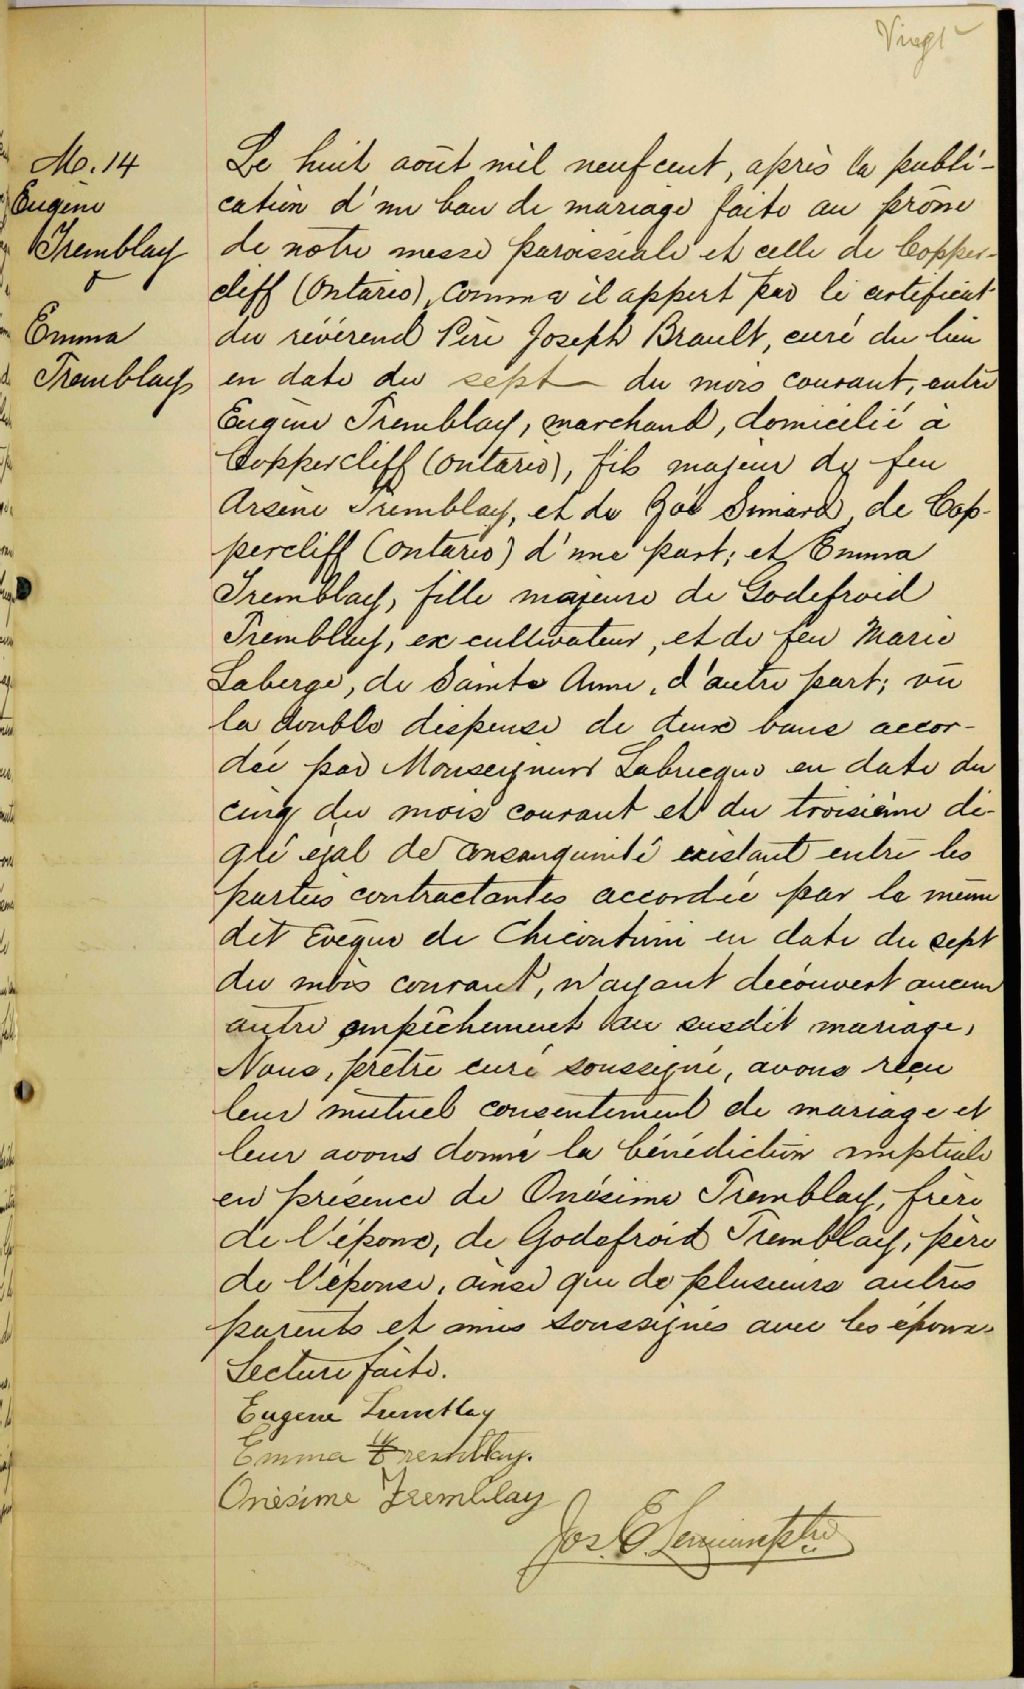 Vingt
M. 14
Eugène
Tremblay
&
Emma
Tremblay
Le huit août mil neuf cent, après la publi-
cation d'un ban de mariage faite au prône
de notre messe paroissiale et celle de Copper-
cliff (Ontario), comme il appert par le certificat
du révérend Père Joseph Brault, curé du lieu
en date du sept du mois courant, entre
Eugène Tremblay, marchand, domicilié à
Coppercliff (Ontario), fils majeur de feu
Arsène Tremblay, et de Zoé Simard, de Cop-
percliff (Ontario) d'une part; et Emma
Tremblay, fille majeure de Godefroid
Tremblay, ex cultivateur, et de feu Marie
Laberge, de Sainte Anne, d'autre part; vu
la double dispense de deux bans accor-
dée par Monseigneur Labrecque en date du
cinq du mois courant et du troisième de-
gré égal de consanguinité existant entre les
parties contractantes accordée par le même
dit Evêque de Chicoutimi en date du sept
du mois courant, n'ayant découvert aucun
autre empêchement au susdit mariage,
Nous, prêtre curé soussigné, avons reçu
leur mutuel consentement de mariage et
leur avons donné la bénédiction nuptiale
en présence de Onésime Tremblay, frère
de l'époux, de Godefroid Tremblay, père
de l'épouse, ainsi que de plusieurs autres
parents et amis soussignés avec les époux.
Lecture faite.
Eugene Tremblay
Emma Tremblay.
Onésime Tremblay
Jos. E. Lemieux ptre